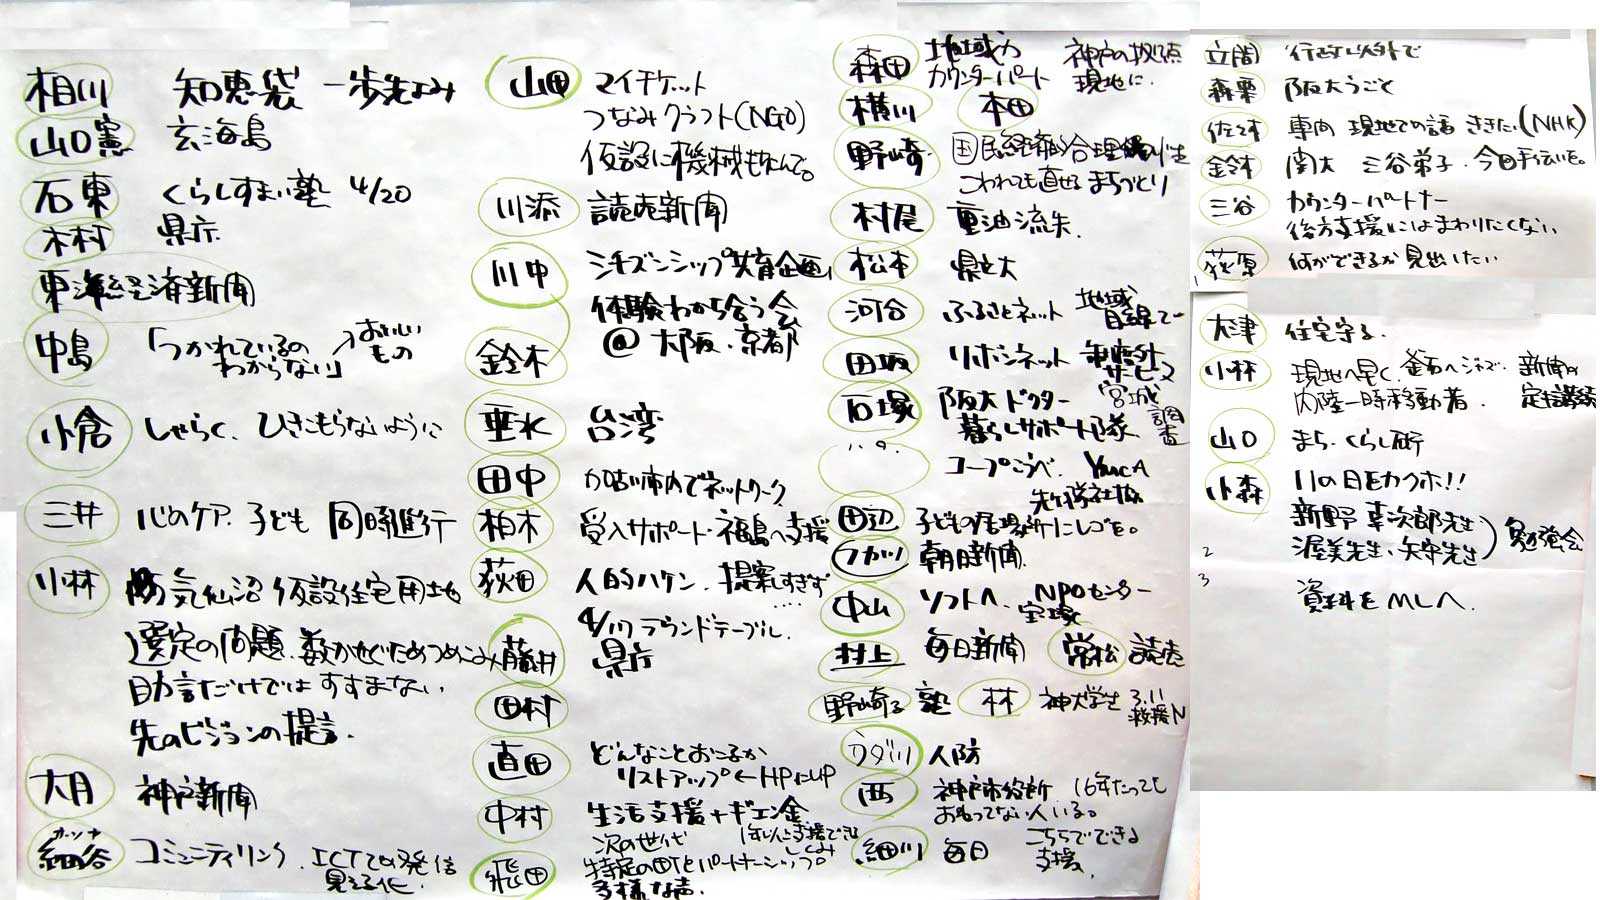 相川 知恵袋 一歩先よみ
山口憲 玄海島
石東 くらしすまい塾 4/20
木村 県庁
東洋経済新聞
中島 「つかれているの
わからない」 おいしい
もの
小倉 しゃらく、ひきこもらないように
三井 心のケア、子ども 同時進行
小林 気仙沼 仮設住宅用地
選定の問題、数かせぐためつめこみ
助言だけではすすまない、
先のビジョンの提言。
大月 神戸新聞
細谷 コミュニティリンク、ICTでの発信
見える化。
山田 マイチケット
つなみクラフト(NGO)
仮設に機械もちこんで。
川添 読売新聞
川中 シチズンシップ共育企画
体験わかち合う会
@ 大阪、京都
鈴木
垂水 台湾
田中 加古川市内でネットワーク
柏木 受入サポート・福島へ支援
荻田 人的ハケン、提案しすぎず
....
4/17 ラウンドテーブル、
藤井 県庁
田村
直田 どんなことおこるか
リストアップ←HPにUP
中村 生活支援+ギエン金
次の世代 1年以上支援できる
しくみ
飛田 特定の町とパートナーシップ。
多様な声、
森田 地域力 神戸の拠点
カウンターパート 現地に、
横川 本田
野崎 国民経済的合理
こわれても直せるまちづくり
村尾 重油流失、
松本 県立大
河合 ふるさとネット 地域
目線で
田坂 リボンネット 制度外
サービス
石塚 阪大ドクター 宮城
暮らしサポート隊 調査
コープこうべ、YMCA
田辺 子どもの居場所
朝日新聞
中山 ソフトへ、NPOセンター
宝塚
村上 毎日新聞 常松 読売
野崎る 塾 林 神大学生 3.11
救援N
ウダ川 人防
西 神戸市役所 16年たっても
おわってない人いる。
細川 毎日 こちらでできる
支援、
立間 行政以外で
森栗 阪大うごく
佐々木 専門 現地での話 ききたい(NHK)
鈴木 関大 三谷弟子、今日手伝いを。
三谷 カウンターパートナー
後方支援にはまわりたくない
荻原 何ができるか見出したい
1
大津 住宅守る、
小林 現地へ早く、釜石へジャズ・新聞
内陸一時移動者、
山口 まち・くらし研
小森 11の日をカクホ!!
新野 幸次郎先生
渥美先生、矢守先生 勉強会
2
3
資料をMLへ、